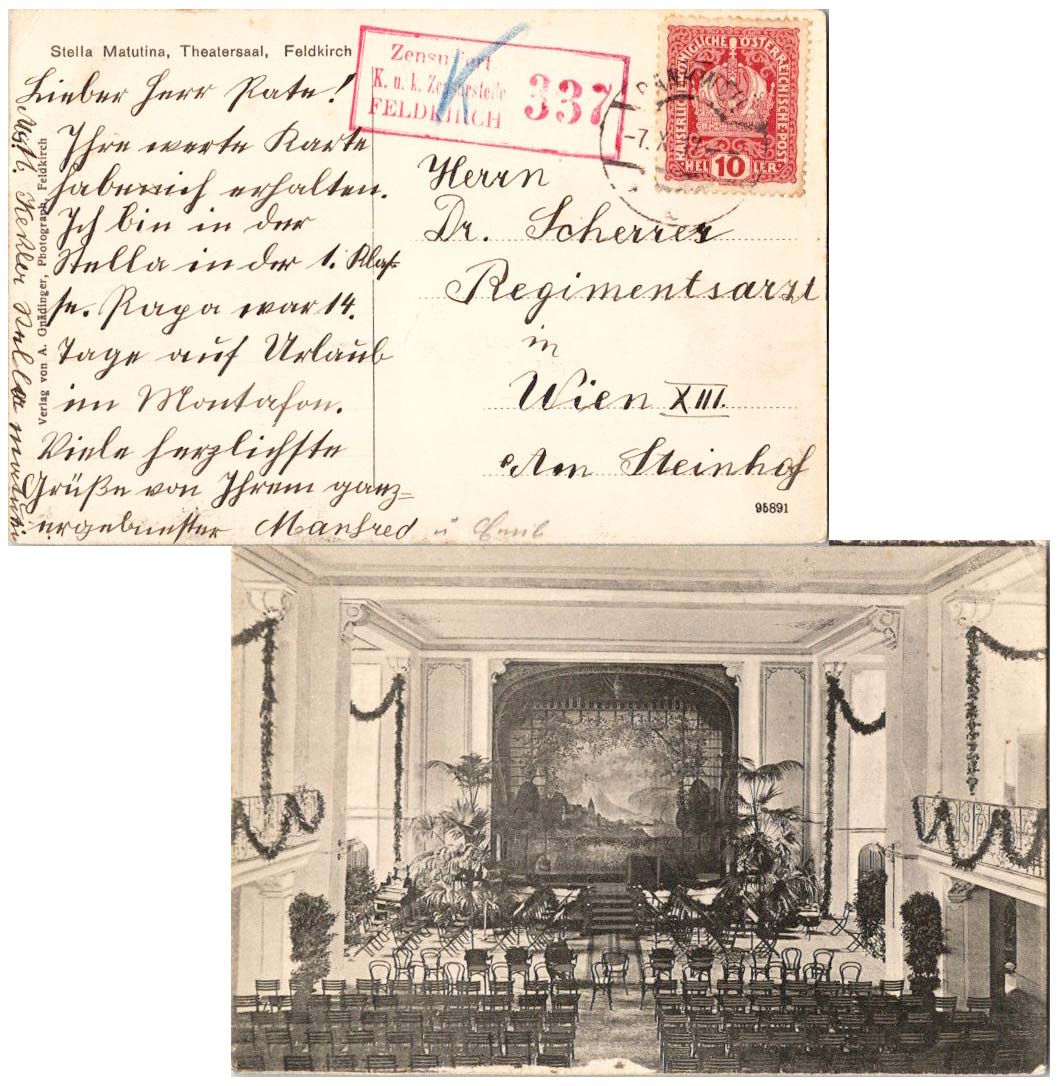 Stella Matutina, Theatersaal, Feldkirch
Lieber Herr Pate!
Ihre werte Karte
habe ich erhalten.
Ich bin in der
Stella in der 1. Klas-
se. Papa war 14.
Tage auf Urlaub
im Montafon.
Viele herzlichste
Grüße von Ihrem ganz-
ergebensten Manfred u
Verlag von A. Gnädinger, Photograph, Feldkirch
Zensuriert
K. u. k. Zensurstelle
FELDKIRCH
337
KAISERLICHE KÖNIGLICHE ÖSTERREICHISCHE POST
HEL 10 LER
-7. X
Herrn
Dr. Scherrer
Regimentsarzt
in
Wien XIII.
Am Steinhof
95891